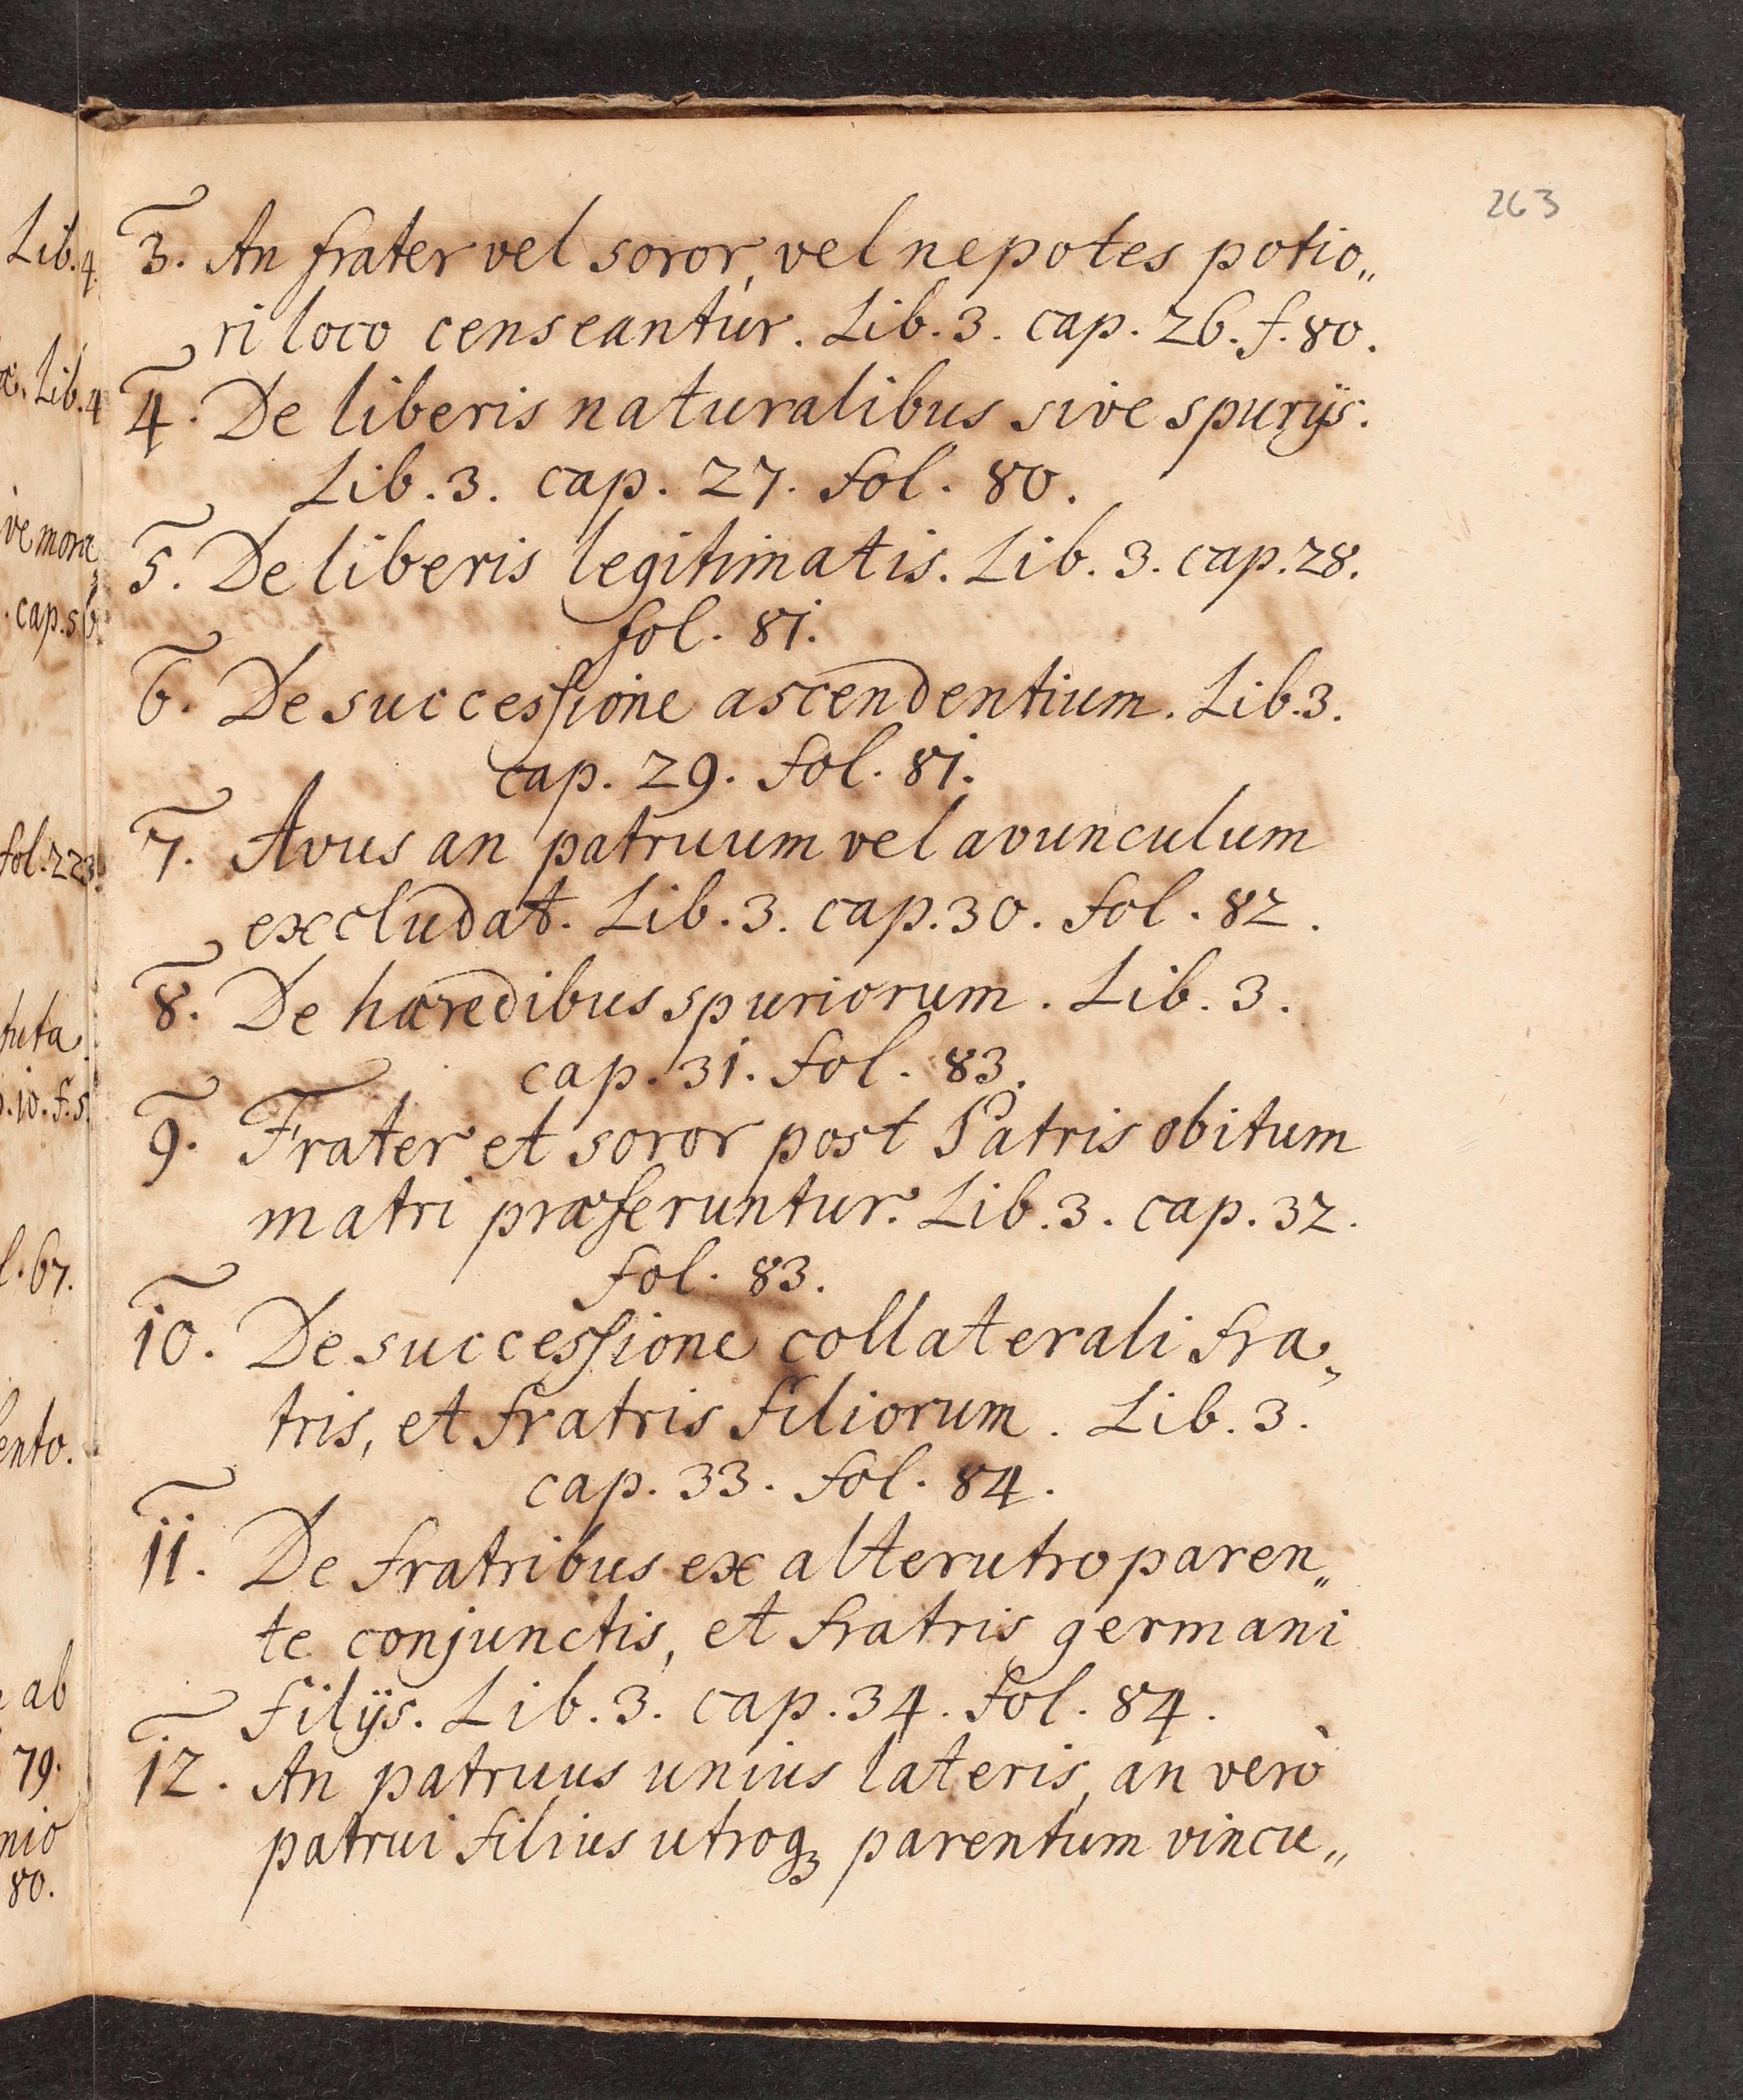 263
3. An frater vel soror, vel nepotes potio„
ri loco censeantur. Lib. 3. cap. 26. f. 80.
4. De liberis naturalibus sive spurijs.
Lib. 3. cap. 27. fol. 80.
5. De liberis legitimatis. Lib. 3. cap. 28.
fol. 81.
6. De successione ascendentium. Lib. 3.
cap. 29. fol. 81.
7. Avus an patruum vel avunculum
excludat. Lib. 3. cap. 30. fol. 82.
8. De hæredibus spuriorum. Lib. 3.
cap. 31. fol. 83.
9. Frater et soror post Patris obitum
matri præferuntur. Lib. 3. cap. 32.
fol. 83.
10. De successione collaterali fra„
tris, et fratris filiorum. Lib. 3.
cap. 33. fol. 84.
11. De fratribus ex alterutro paren„
te conjunctis, et fratris germani
filijs. Lib. 3. cap. 34. fol. 84.
12. An patruus unius lateris, an verò
patrui filius utroq; parentum vincu„
Lib. 4.
Lib. 4
cap. 56.
fol. 223.
. 10. f. 5.
. 67.
ab
79.
80.